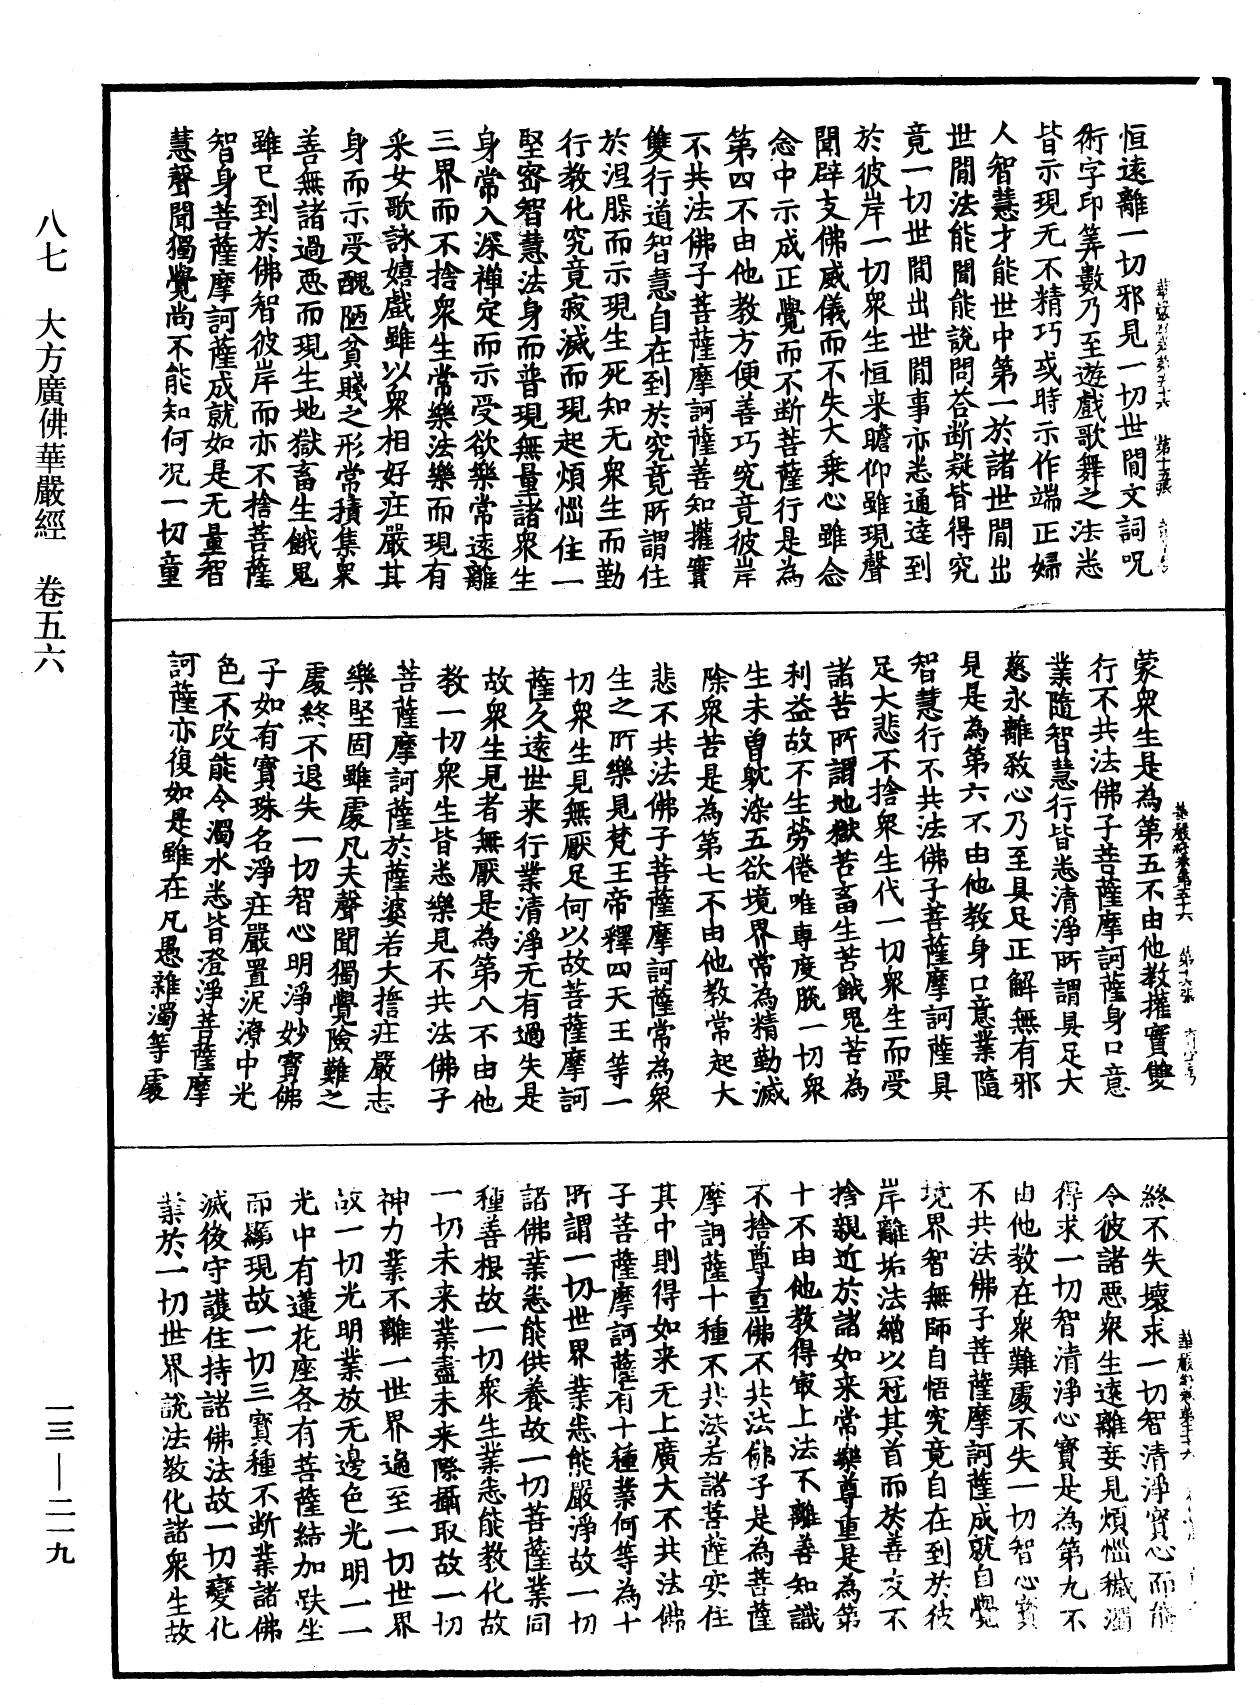 恒遠離一切邪見一切世間文詞呪
術字印筭數乃至遊戲歌舞之法悉
皆示現无不精巧或時示作端正婦
人智慧才能世中第一於諸世閒出
世間法能問能說問荅断疑皆得究
竟一切世間出世間事亦悉通達到
於彼岸一切衆生恒来瞻仰雖現聲
聞辟支佛威儀而不失大乗心雖念
念中示成正覺而不断菩薩行是為
第四不由他教方便善巧究竟彼岸
不共法佛子菩薩摩訶薩善知攉實
雙行道智慧自在到於究竟所謂住
於涅槃而示現生死知无衆生而勤
行教化究竟寂滅而現起煩惱住一
堅密智慧法身而普現無量諸衆生
身常入深禪定而示受欲樂常遠離
三界而不捨衆生常樂法樂而現有
采女歌詠嬉戲雖以衆相好疘嚴其
身而示受醜陋貧賤之形常積集衆
善無諸過惡而現生地獄畜生餓鬼
雖已到於佛智彼岸而亦不捨菩薩
智身菩薩摩訶薩成就如是无量智
慧聲聞獨覺尚不能知何况一切童
蒙衆生是為第五不由他教攉實雙
行不共法佛子菩薩摩訶薩身口意
業隨智慧行皆悉清淨所謂具足大
慈永離殺心乃至具足正解無有邪
見是為第六不由他教身口意業隨
智慧行不共法佛子菩薩摩訶薩具
足大悲不捨衆生代一切衆生而受
諸苦所謂地獄苦畜生苦餓鬼苦為
利益故不生勞倦唯專度脫一切衆
生未曽躭染五欲境界常為精勤滅
除衆苦是為第七不由他教常起大
悲不共法佛子菩薩摩訶薩常為衆
生之所樂見梵王帝釋四天王等一
切衆生見無厭足何以故菩薩摩訶
薩久遠世来行業清淨无有過失是
故衆生見者無厭是為第八不由他
教一切衆生皆悉樂見不共法佛子
菩薩摩訶薩於薩婆若大擔疘嚴志
樂堅固雖處凡夫聲聞獨覺險難之
處終不退失一切智心明淨妙寳佛
子如有寳珠名淨疘嚴置泥潦中光
色不改能令濁水悉皆澄淨菩薩摩
訶薩亦復如是雖在凡愚雜濁等處
終不失壞求一切智清淨寳心而能
令彼諸惡衆生遠離妄見煩惱穢濁
得求一切智清淨心寳是為第九不
由他教在衆難處不失一切智心寳
不共法佛子菩薩摩訶薩成就自覺
境界智無師自悟究竟自在到於彼
岸離垢法繒以冠其首而於善友不
捨親近於諸如来常樂尊重是為第
十不由他教得冣上法不離善知識
不捨尊重佛不共法佛子是為菩薩
摩訶薩十種不共法若諸菩薩安住
其中則得如来无上廣大不共法佛
子菩薩摩訶薩有十種業何等為十
所謂一切世界業悉能嚴淨故一切
諸佛業悉能供養故一切菩薩業同
種善根故一切衆生業悉能教化故
一切未来業盡未来際攝取故一切
神力業不離一世界遍至一切世界
故一切光明業放无邊色光明一一
光中有蓮花座各有菩薩結加趺坐
而顯現故一切三寳種不断業諸佛
滅後守護住持諸佛法故一切變化
業於一切世界說法教化諸衆生故
八七　大方廣佛華嚴經　卷五六
一三—二一九